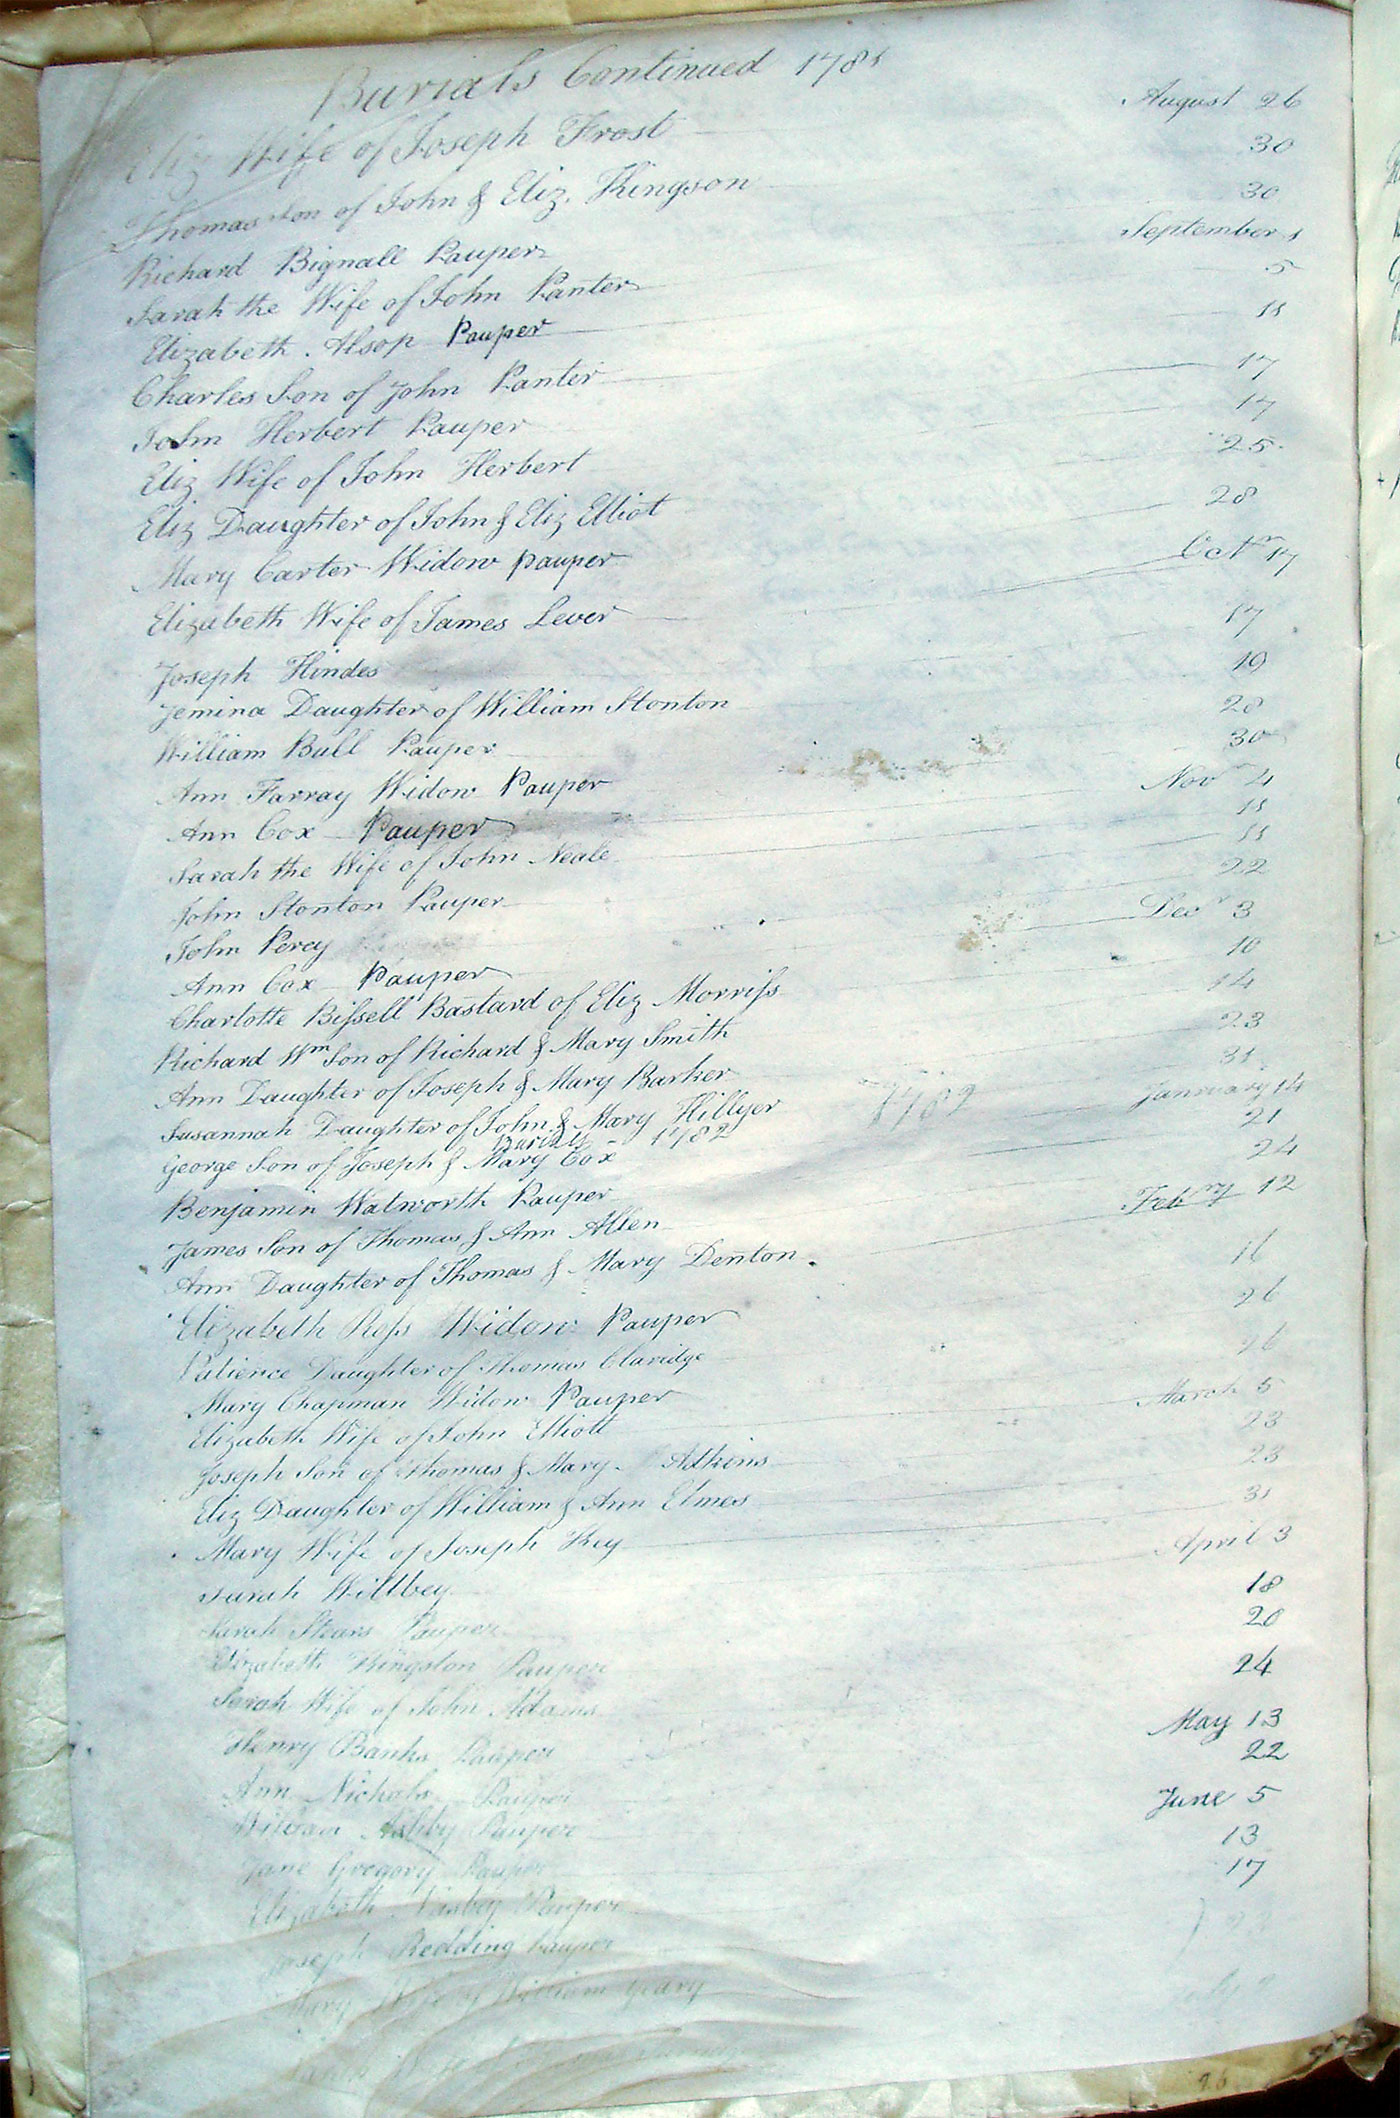 Burials Continued 1781
Eliz Wife of Joseph Frost August 26
Thomas Son of John & Eliz. Kingson 30
Richard Bignall Pauper 30
Sarah the Wife of John Panter September 1
Elizabeth . Alsop Pauper 5
Charles Son of John Panter 11
John Herbert Pauper 17
Eliz Wife of John Herbert 17
Eliz Daughter of John & Eliz Elliot 25
Mary Carter Widow pauper 28
Elizabeth Wife of James Lever Octr 17
Joseph Hindes 17
Jemina Daughter of William Stonton 19
William Bull Pauper 20
Ann Farray Widow Pauper 30
Ann Cox Pauper Novr 4
Sarah the Wife of John Neale 11
John Stonton Pauper 11
John Percy 22
Ann Cox Pauper Decr 3
Charlotte Bissell Bastard of Eliz Morriss 10
Richard Wm Son of Richard & Mary Smith 14
Ann Daughter of Joseph & Mary Barker 23
Susannah Daughter of John & Mary Hillyer 31
Burials - 1782 1782
George Son of Joseph & Mary Cox January 14
Benjamin Watworth Pauper 21
James Son of Thomas & Ann Allen 24
Ann Daughter of Thomas & Mary Denton Febry 12
Elizabeth Ross Widow Pauper 16
Patience Daughter of Thomas Claridge 26
Mary Chapman Widow Pauper 26
Elizabeth Wife of John Elliott March 5
Joseph Son of Thomas & Mary Adkins 23
Eliz Daughter of William & Ann Elmes 23
Mary Wife of Joseph Key 31
Sarah Willbey April 3
Sarah Stears Pauper 18
Elizabeth Kingston Pauper 20
Sarah Wife of John Adams 24
Henry Banks Pauper May 13
Ann Nichols Pauper 22
William Ashby Pauper June 5
Jane Gregory Pauper 13
Elizabeth Pauper 17
Joseph Redding Pauper
Mary Wife of William Geary July